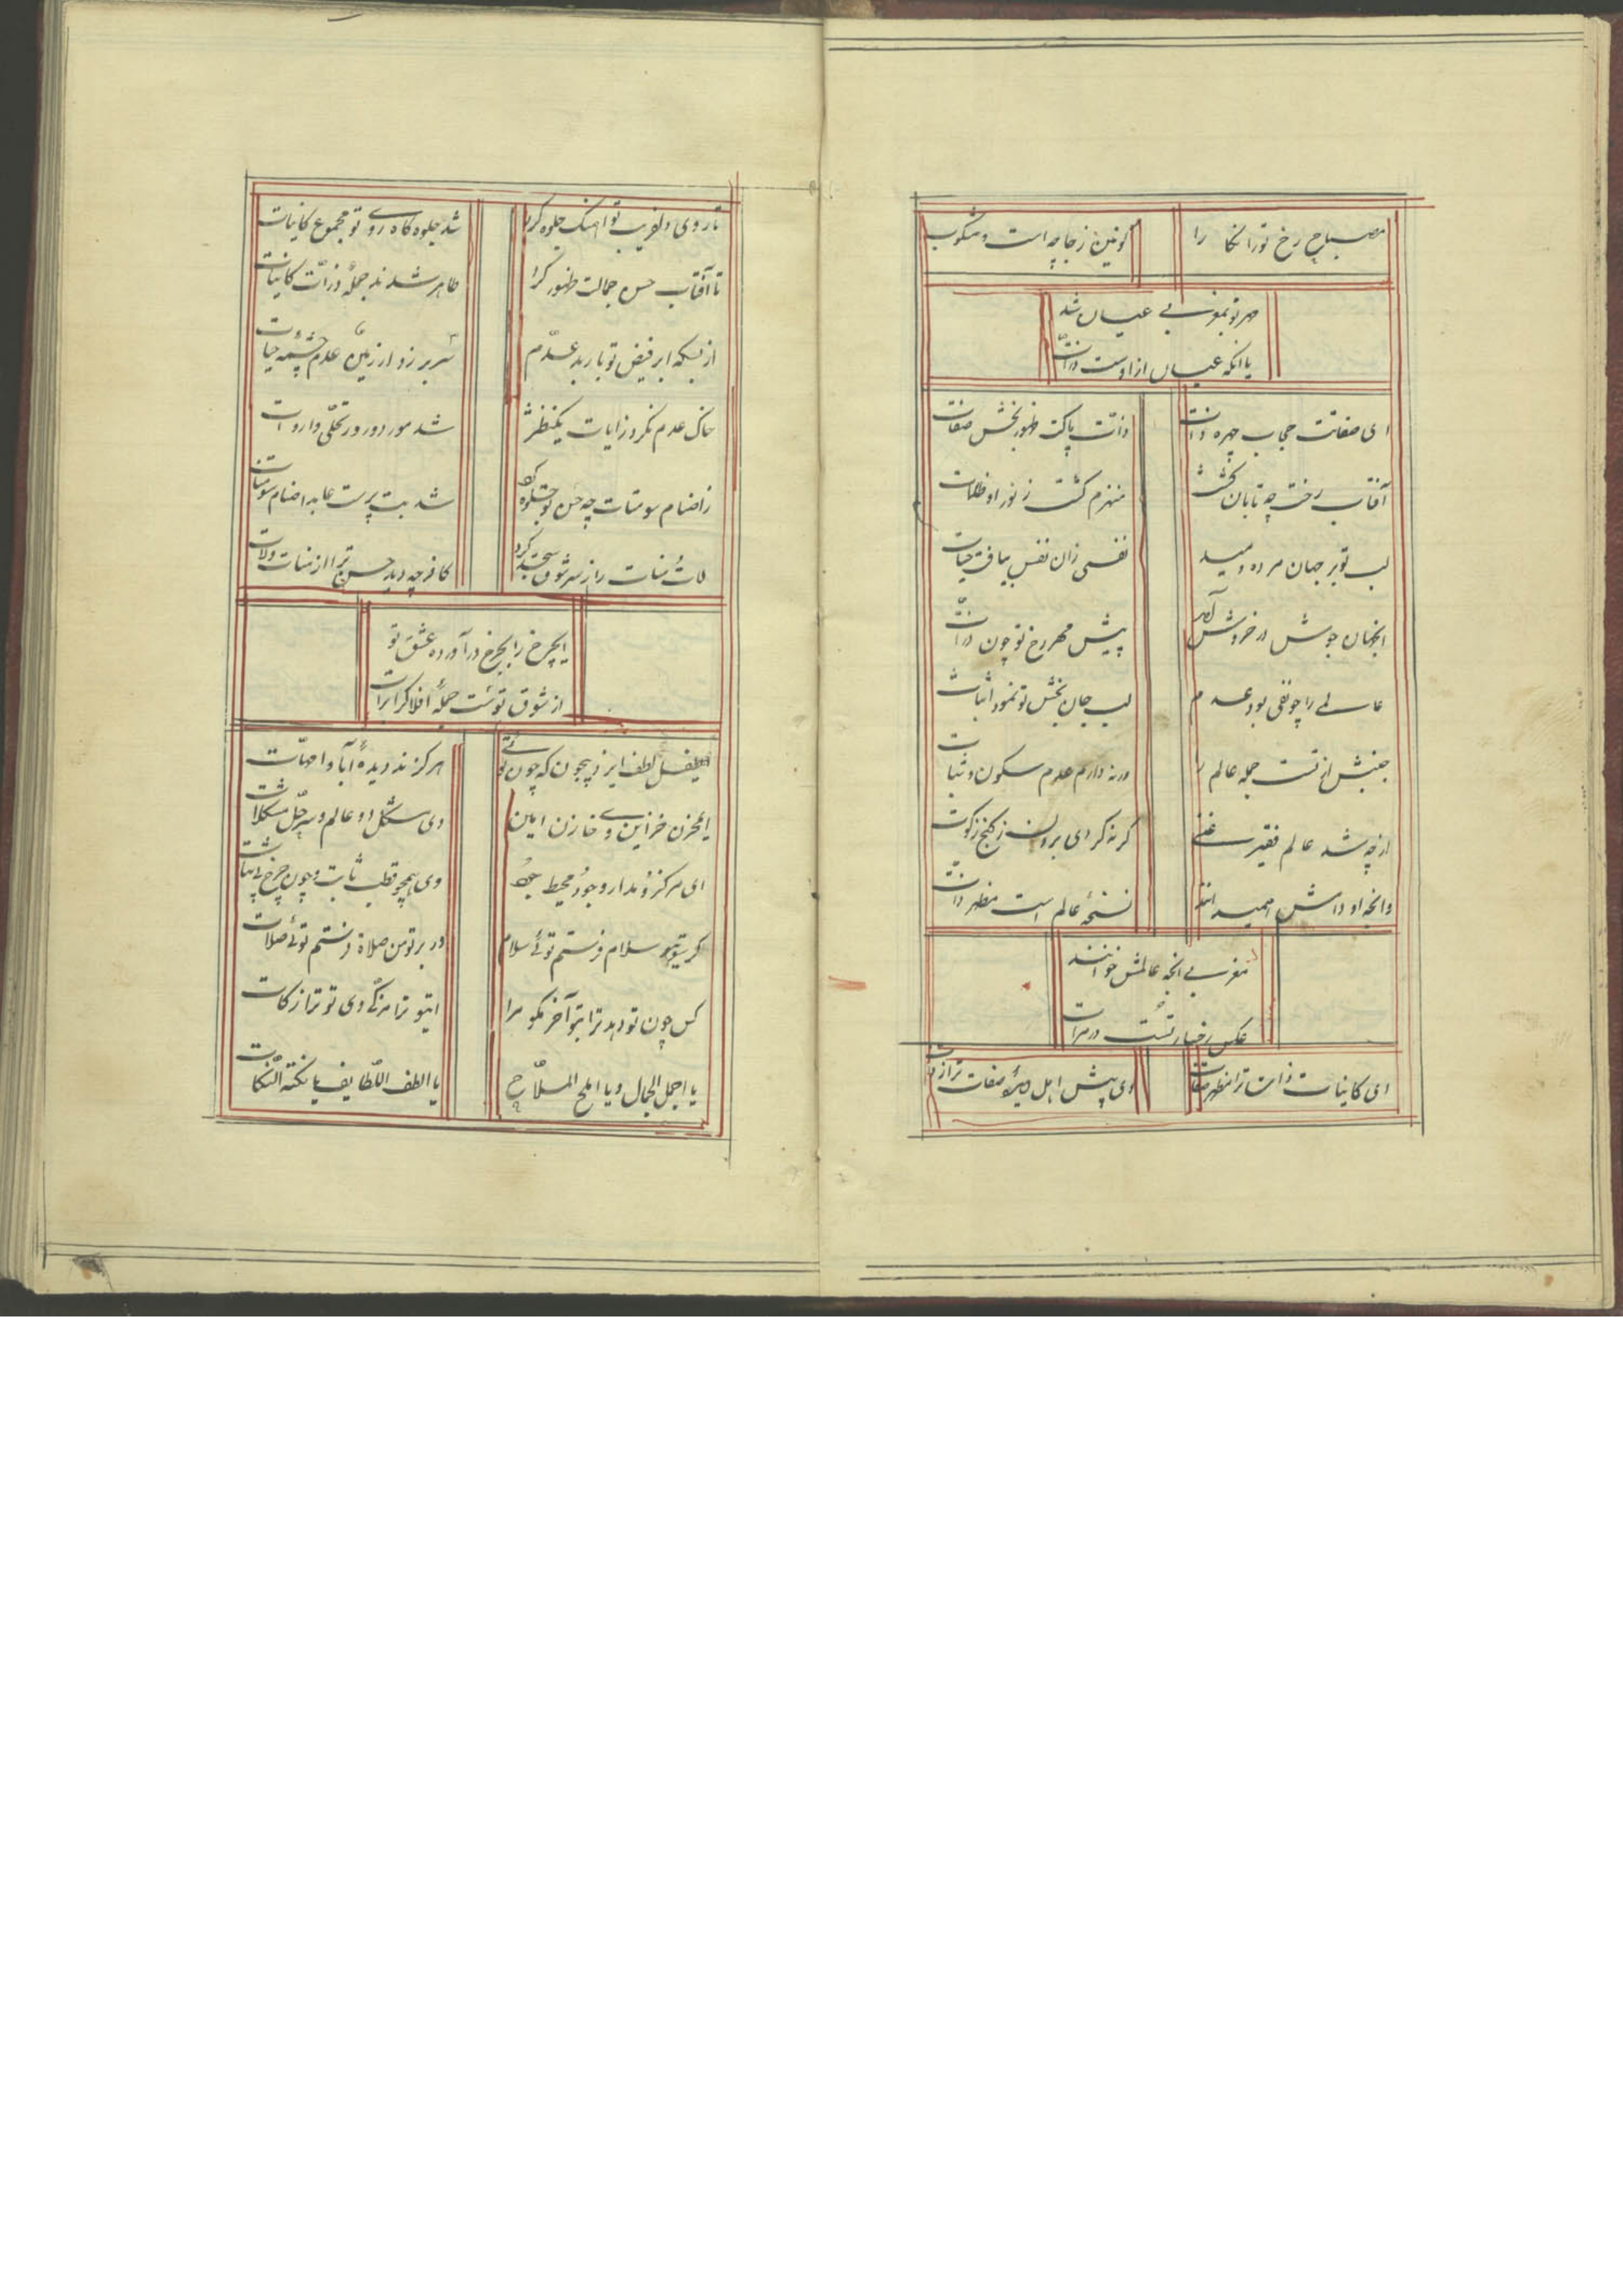 مصباح رخ تو را نکا را
کونین زجاجه است و مشکوت
مهر تو بمغربی عیان شد
با آنکه عیان ازاوست ذرات
ای صفات حجاب چهره ذات
ذات پاکت ظهور بخش صفات
آفتاب رخت چه تابان کشت
منهزم کشت ز نور او ظلمات
لب تو بر جهان مرده دمید
نفسی زان نفس بیافت حیات
اینچنان جوش در خروش آمد
پیش مهر رخ تو چون ذرات
عالمی را چو نفی بود عدم
لب جان بخش تو نمود اثبات
جنبش از تست جمله عالم را
ورنه دارم عدم سکون و ثبات
ازچه شد عالم فقیر غنی
کر نه کردی برون ز کنج زکوت
وانچه او دانش امید اند
نسخه عالم است مظهر ذات
مغربی انچه عالمش خوانند
عکس رخسار تست در مرات
ای کاینات ذات ترا مظهر صفات
وی پیش اهل دیده صفات ترا ذات
تا روی دلفریب تو اهنک جلوه کرد
شد جلوه کاه روی تو مجموع کاینات
تا آفتاب حسن جمالت ظهور کرد
ظاهر شدند جمله ذرات کاینات
از بسکه ابر فیض تو بارید بر عدم
سر بر زد از زمین عدم چشمه حیات
خاک عدم نکرد زایات یکنظر
شد مورد ورود تجلی واردات
زاصنام سومنات چه حسن تو جلوه کرد
شد بت پرست عابد اصنام سومنات
لات و منات را ز سر شوق سجده کرد
کافر چه دید حسن ترا از منات ولات
ایچرخ را بچرخ درآورده عشق تو
از شوق تو ست جمله افلاک را برات
لطف ایزد بیچون که چون توئی
هرکز ندیده دیده آبا و امهات
ای مخزن خزاین و ی خازن امین
وی مشکل دو عالم و پر حل مشکلات
ای مرکز و مدار وجود محیط جود
وی همچو قطب ثابت و چون چرخ بی ثبات
کر سوی تو سلام فرستم توئی سلام
ور بر تو من صلاة فرستم توئی صلات
کس چون تو دهد ترا بتو آخر بکو مرا
ای تو ترا مزکی وی تو ترا زکات
یا اجمل الجمال ویا املح الملاح
یا الطف اللطایف یا نکتة النکات